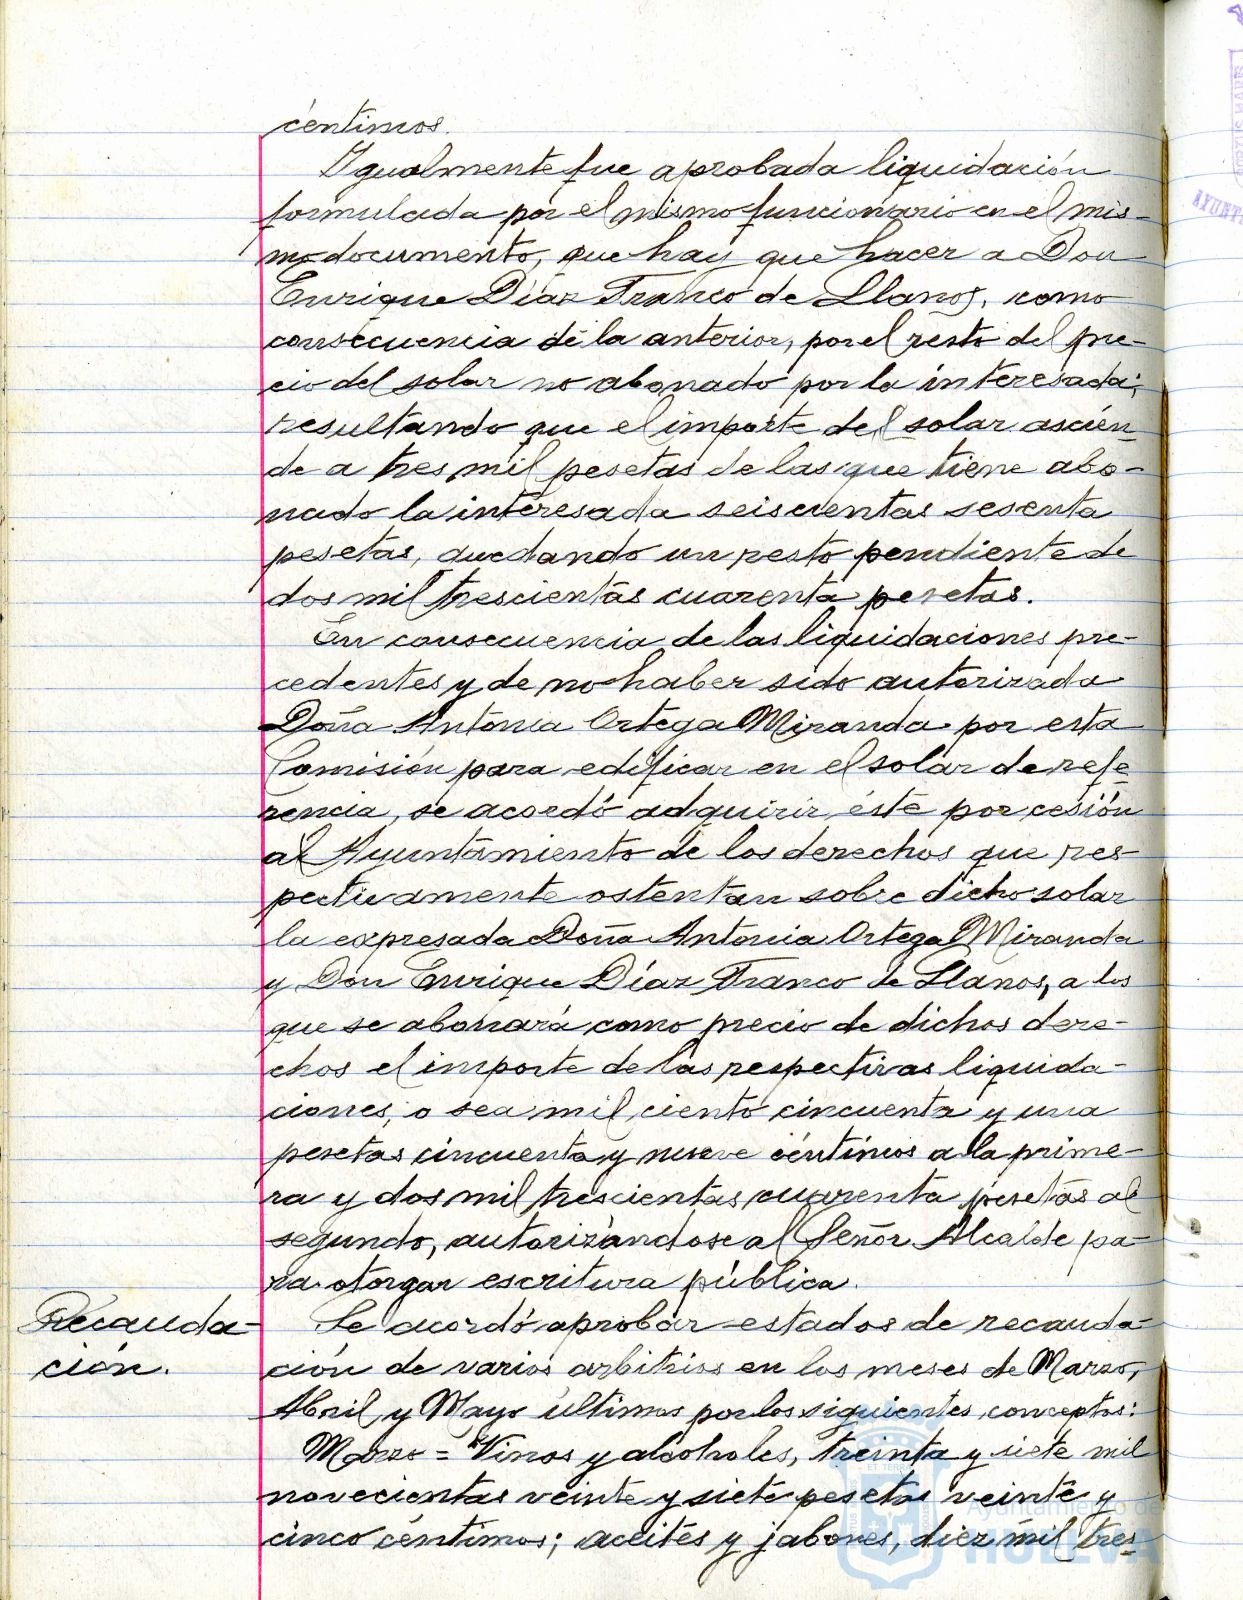 céntimos.
Igualmente fue aprobada liquidación
formulada por el mismo funcionario en el mis-
mo documento, que hay que hacer a Don
Enrique Díaz Franco de Llanos, como
consecuencia de la anterior, por el resto del pre-
cio del solar no abonado por la interesada;
resultando que el importe del solar ascien-
de a tres mil pesetas de las que tiene abo-
nado la interesada seiscientas sesenta
pesetas, quedando un resto pendiente de
dos mil trescientas cuarenta pesetas.
En consecuencia de las liquidaciones pre-
cedentes y de no haber sido autorizada
Doña Antonia Ortega Miranda por esta
Comisión para edificar en el solar de refe
rencia, se acordó adquirir éste por cesión
al Ayuntamiento de los derechos que res-
pectivamente ostentan sobre dicho solar
la expresada Doña Antonia Ortega Miranda
y Don Enrique Díaz Franco de Llanos, a los
que se abonará como precio de dichos dere-
chos el importe de las respectivas liquida-
ciones, o sea mil ciento cincuenta y una
pesetas cincuenta y nueve céntimos a la prime-
ra y dos mil trescientas cuarenta pesetas al
segundo, autorizándose al Señor Alcalde pa-
ra otorgar escritura pública.
Recauda-
ción.
Se acordó aprobar estados de recauda-
ción de varios arbitrios en los meses de Marzo,
Abril y Mayo últimos por los siguientes conceptos:
Marzo = Vinos y alcoholes, treinta y siete mil
novecientas veinte y siete pesetas veinte y
cinco céntimos; aceites y jabones, diez mil tres-
Ayuntamiento de
HUELVA